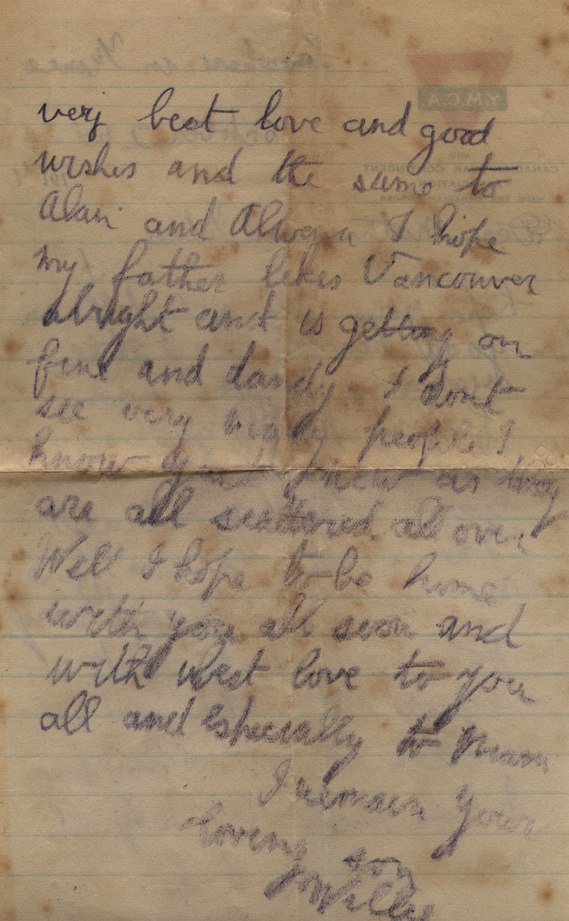 very best love and good
wishes and the same to
Alan and Alwyn I hope
my father likes Vancouver
alright and is getting on
fine and dandy I dont
see very many people I
know just a few as they
are all scattered all over
Well I hope to be home
with you all soon and
with best love to you
all and especially to Mam
I remain your
loving son
Willie
Somewhere in France
Y.M.C.A.